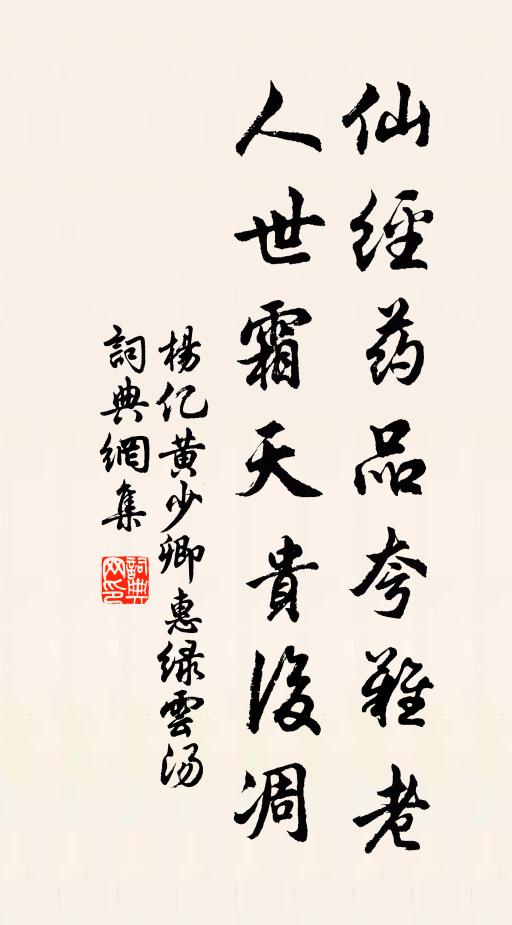 仙經药品夸難老
人世霜天貴後凋
楊亿黄少卿惠绿雲汤
詞典網集
詞典网印